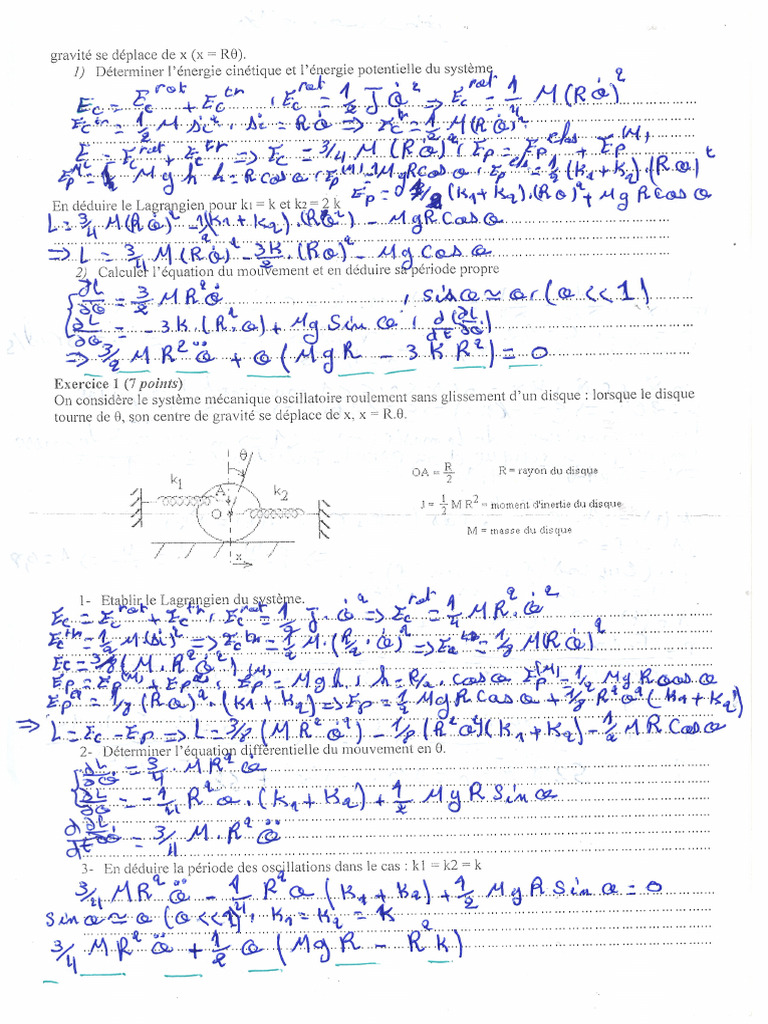 gravité se déplace de x (x = Rθ).
1) Déterminer l'énergie cinétique et l'énergie potentielle du système
Ec = Ec^rot + Ec^tr, Ec^rot = 1/2 J θ̇² ⇒ Ec^rot = 1/4 M(Rθ̇)²
Ec^tr = 1/2 M ẋ², ẋ = Rθ̇ ⇒ Ec^tr = 1/2 M(Rθ̇)²
Ec = Ec^rot + Ec^tr ⇒ Ec = 3/4 M (Rθ̇)², Ep = Ep^els + Ep^(M),
Mgh h = R cos θ, Ep^(M) = MgR cos θ, Ep^els = 1/2 (K1+K2).(Rθ)²
En déduire le Lagrangien pour k1 = k et k2 = 2 k
Ep = 1/2 (K1+K2).(Rθ)² + MgR cos θ
L = 3/4 M(Rθ̇)² - 1/2(K1+K2).(Rθ)² - MgR Cos θ
⇒ L = 3/4 M(Rθ̇)² - 3K/2.(Rθ)² - Mg Cos θ
2) Calculer l'équation du mouvement et en déduire sa période propre
∂L/∂θ̇ = 3/2 MR²θ̇, sin θ ≃ θ, (θ << 1)
∂L/∂θ = -3K.(R².θ) + Mg Sin θ, d/dt(∂L/∂θ̇)
⇒ 3/2 MR²θ̈ + θ(MgR - 3KR²) = 0
Exercice 1 (7 points)
On considère le système mécanique oscillatoire roulement sans glissement d'un disque : lorsque le disque
tourne de θ, son centre de gravité se déplace de x, x = R.θ.
θ
k1
A
k2
O
x
OA = R/2
R = rayon du disque
J = 1/2 M R² = moment d'inertie du disque
M = masse du disque
1- Etablir le Lagrangien du système.
Ec = Ec^rot + Ec^tr, Ec^rot = 1/2 J.θ̇² ⇒ Ec^rot = 1/4 MR².θ̇²
Ec^tr = 1/2 M(ẋ)² ⇒ Ec^tr = 1/2 M.(R/2.θ̇)² ⇒ Ec^tr = 1/8 M(Rθ̇)²
Ec = 3/8 (M.R²θ̇²)
Ep = Ep^(M) + Ep^el, Ep^(M) = Mgh, h = R/2.cos θ Ep^(M) = 1/2 MgR cos θ
Ep^el = 1/8 (Rθ)².(K1+K2) ⇒ Ep = 1/2 MgR Cos θ + 1/8 R²θ²(K1+K2)
⇒ L = Ec - Ep ⇒ L = 3/8 (MR²θ̇²) - 1/8 (R²θ²)(K1+K2) - 1/2 MR Cos θ
2- Déterminer l'équation différentielle du mouvement en θ.
∂L/∂θ̇ = 3/4.MR²θ̇
∂L/∂θ = -1/4 R²θ.(K1+K2) + 1/2 MgR Sin θ
d/dt ∂L/∂θ̇ = 3/4 M.R²θ̈
3- En déduire la période des oscillations dans le cas : k1 = k2 = k
3/4 MR²θ̈ - 1/4 R²θ(K1+K2) + 1/2 MgR Sin θ = 0
Sin θ ≃ θ (θ << 1), K1 = K2 = K
3/4 MR²θ̈ + 1/2 θ(MgR - R²K)